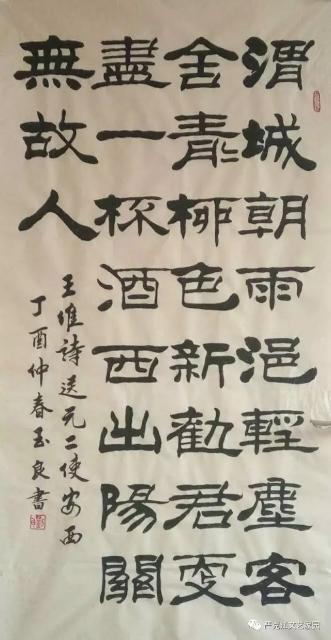 渭城朝雨浥輕塵客
舍青々柳色新勸君更
盡一杯酒西出陽關
無故人
王維詩送元二使安西
丁酉仲春玉良書
文艺家园